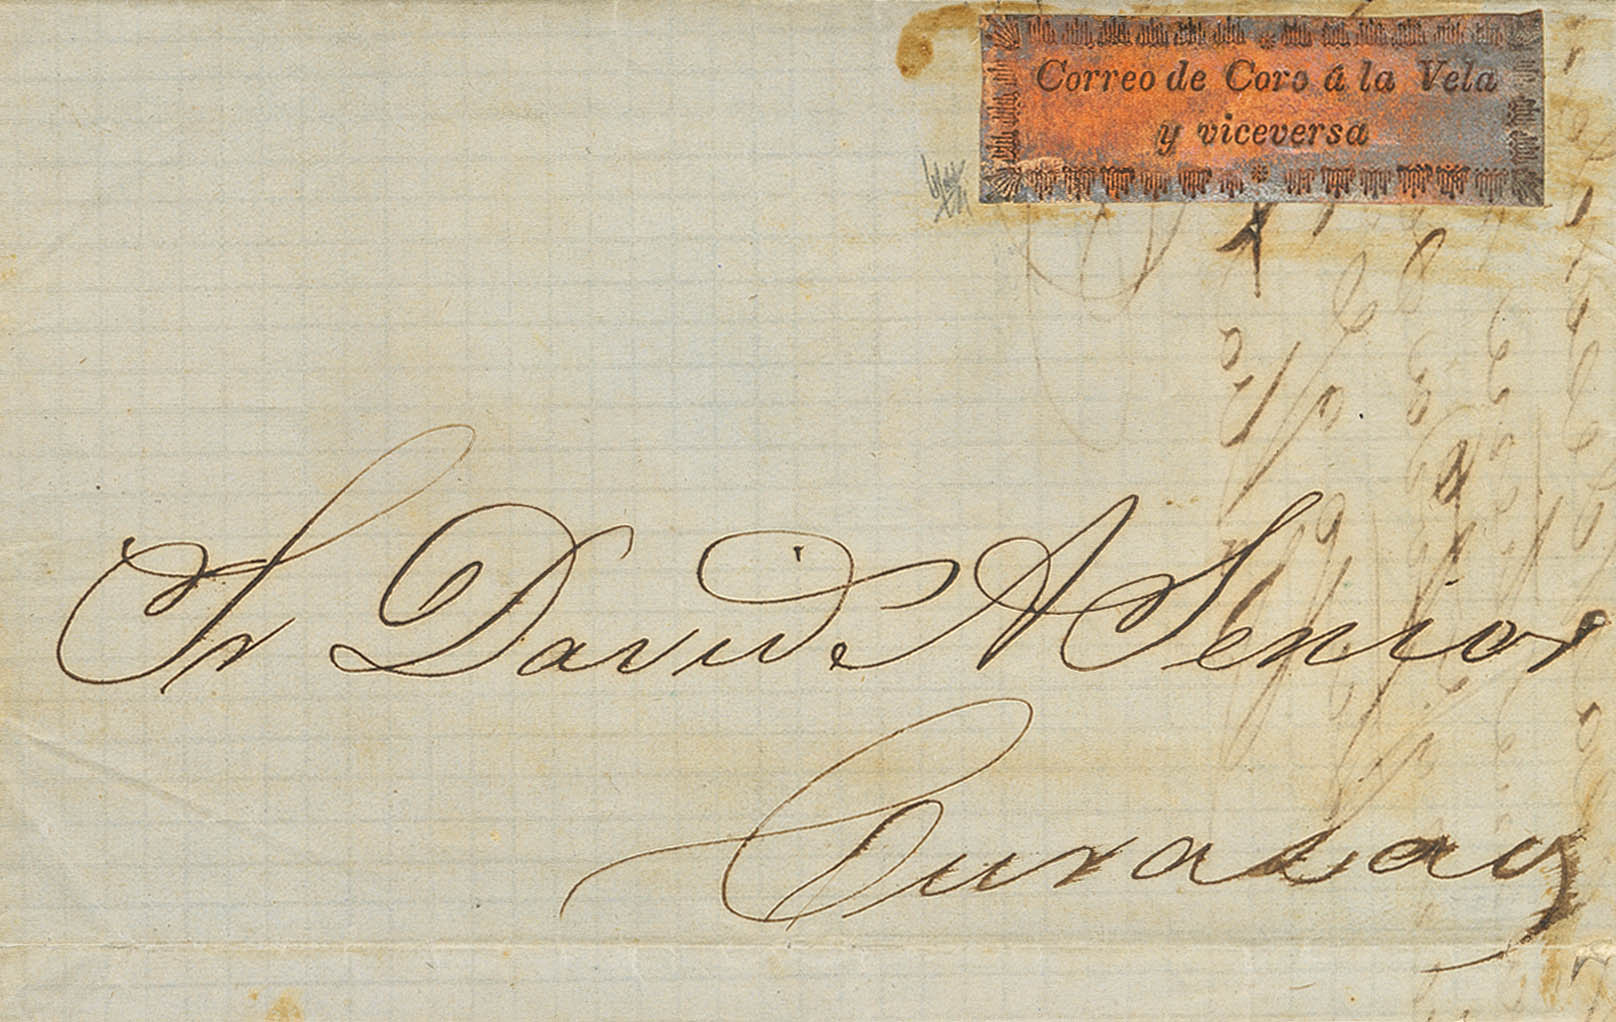 Correo de Coro á la Vela
y viceversa
Sr David A Senior
Curasay